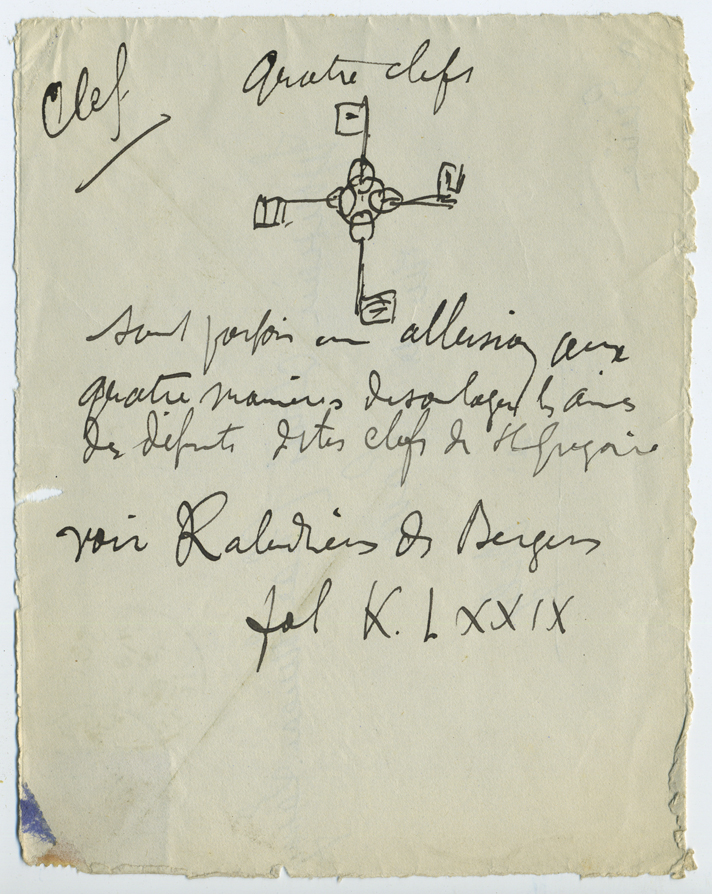 Clef
Quatre clefs
sont parfois une allusion aux
quatre manières de soulager les âmes
des défunts dites clefs de St Grégoire
voir Kalendriers des Bergers
fol K. LXXIX